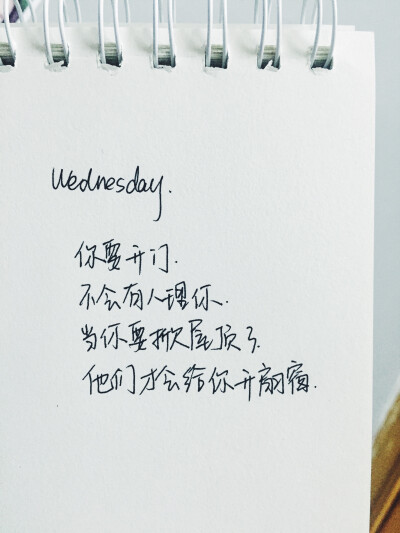 Wednesday.
你要开门.
不会有人理你.
当你要掀屋顶了.
他们才会给你开扇窗.